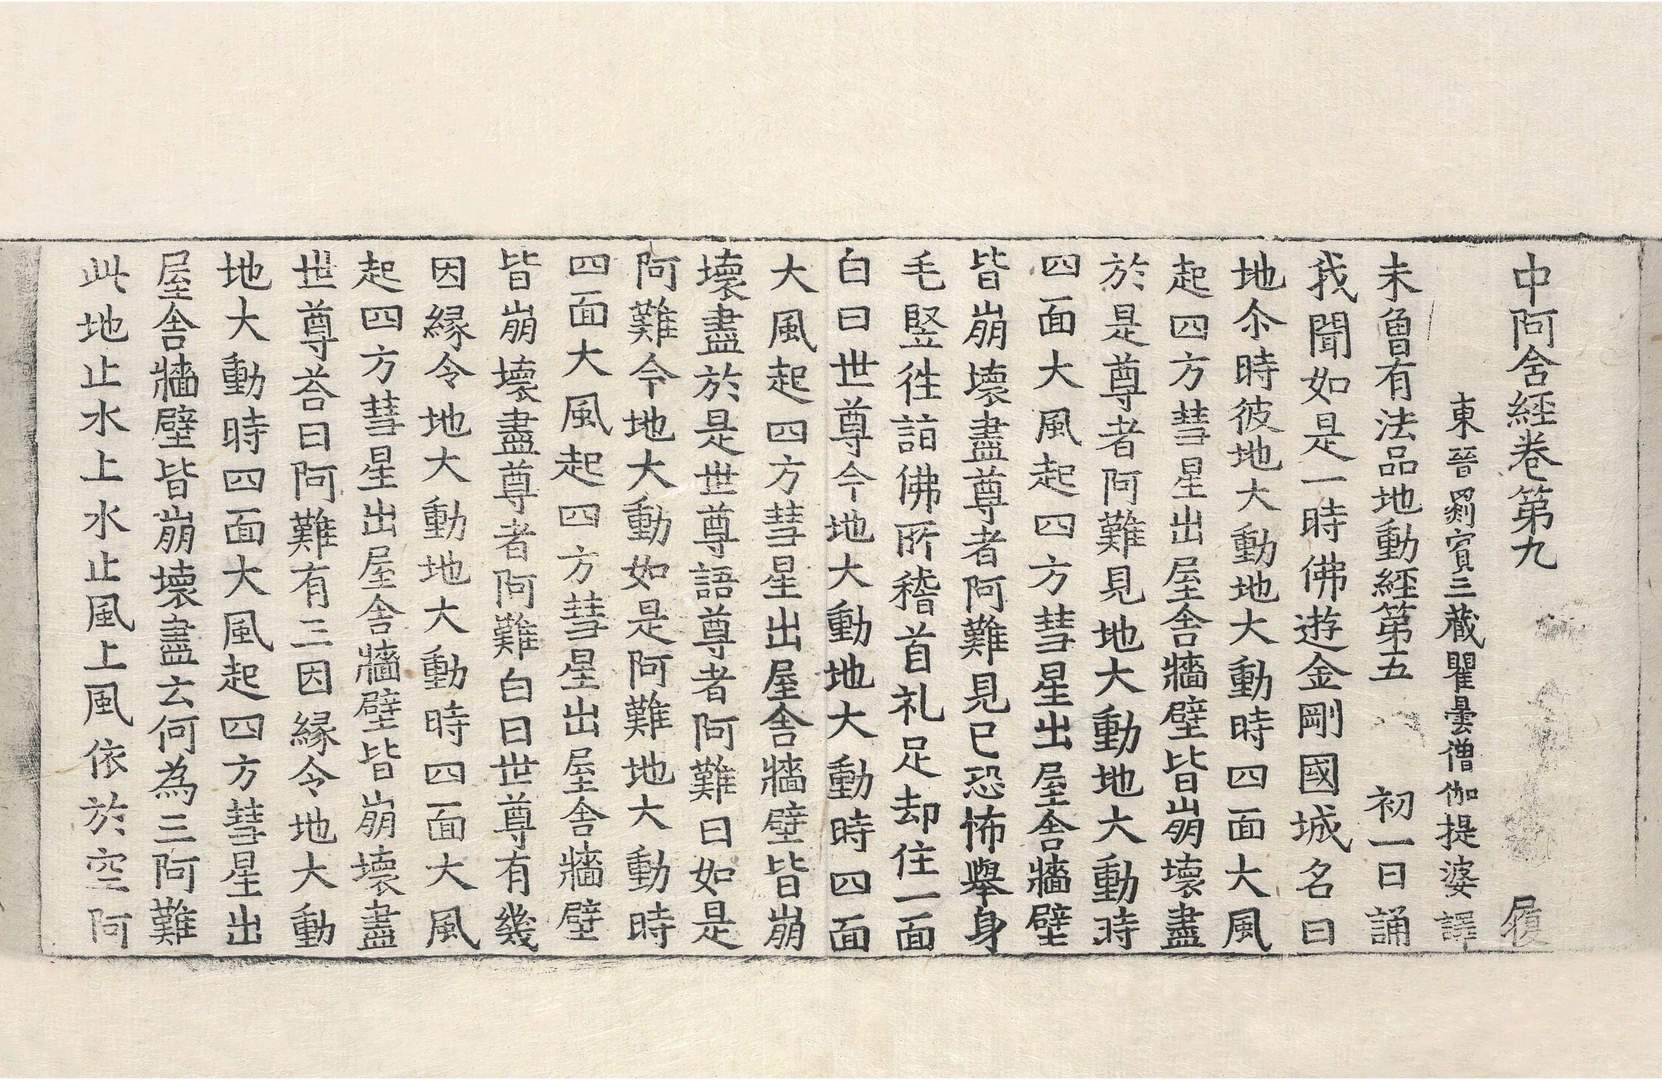 中阿含經卷第九 履
東晉罽賓三藏瞿曇僧伽提婆譯
未曾有法品地動經第五 初一日誦
我聞如是一時佛遊金剛國城名曰
地尒時彼地大動地大動時四面大風
起四方彗星出屋舍牆壁皆崩壞盡
於是尊者阿難見地大動地大動時
四面大風起四方彗星出屋舍牆壁
皆崩壞盡尊者阿難見已恐怖舉身
毛竪往詣佛所稽首礼足却住一面
白曰世尊今地大動地大動時四面
大風起四方彗星出屋舍牆壁皆崩
壞盡於是世尊語尊者阿難曰如是
阿難今地大動如是阿難地大動時
四面大風起四方彗星出屋舍牆壁
皆崩壞盡尊者阿難白曰世尊有幾
因緣令地大動地大動時四面大風
起四方彗星出屋舍牆壁皆崩壞盡
世尊荅曰阿難有三因緣令地大動
地大動時四面大風起四方彗星出
屋舍牆壁皆崩壞盡云何為三阿難
此地止水上水止風上風依於空阿